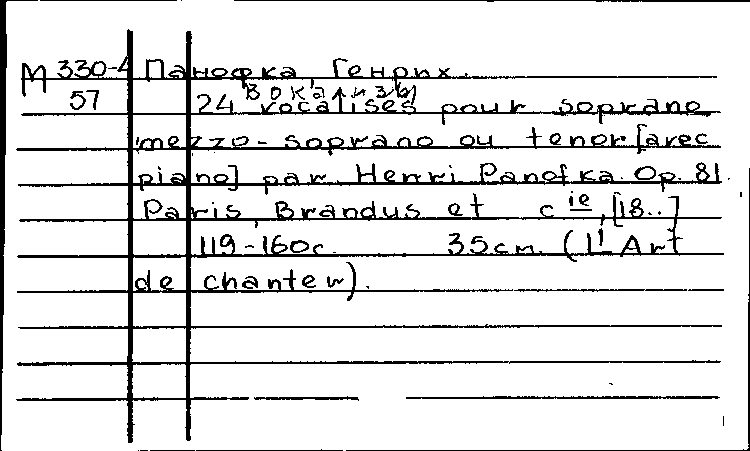 М 330-4 Панофка, Генрих.
57 Вокализы
24 vocalises pour soprano
mezzo-soprano ou tenor [avec
piano] par Henri Panofka. Op. 81.
Paris, Brandus et cie, [18..]
119-160c. 35cm. (L'Art
de chanter).